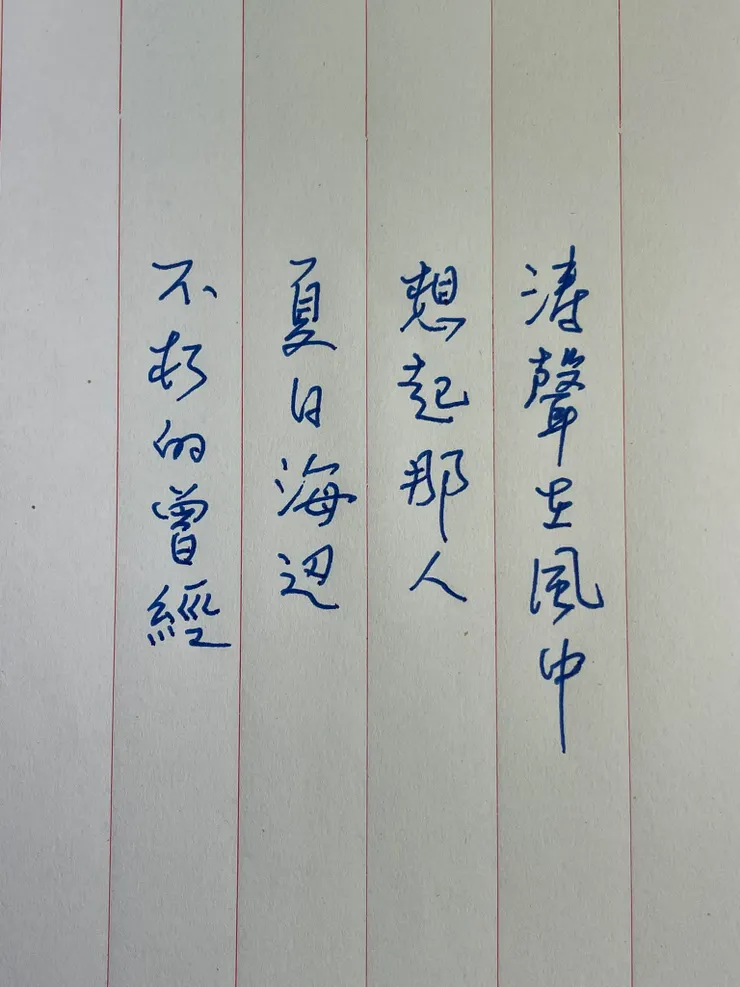 涛聲在風中
想起那人
夏日海辺
不朽的曾經